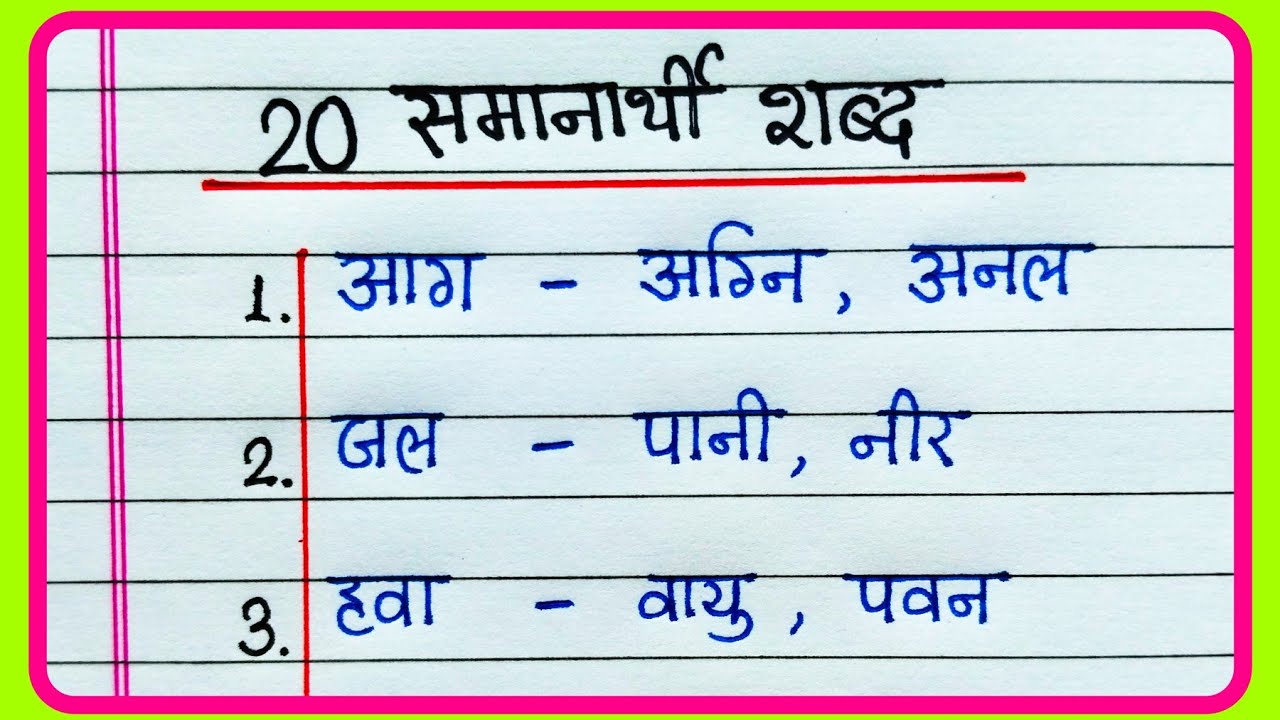 20 समानार्थी शब्द
1. आग - अग्नि, अनल
2. जल - पानी, नीर
3. हवा - वायु, पवन